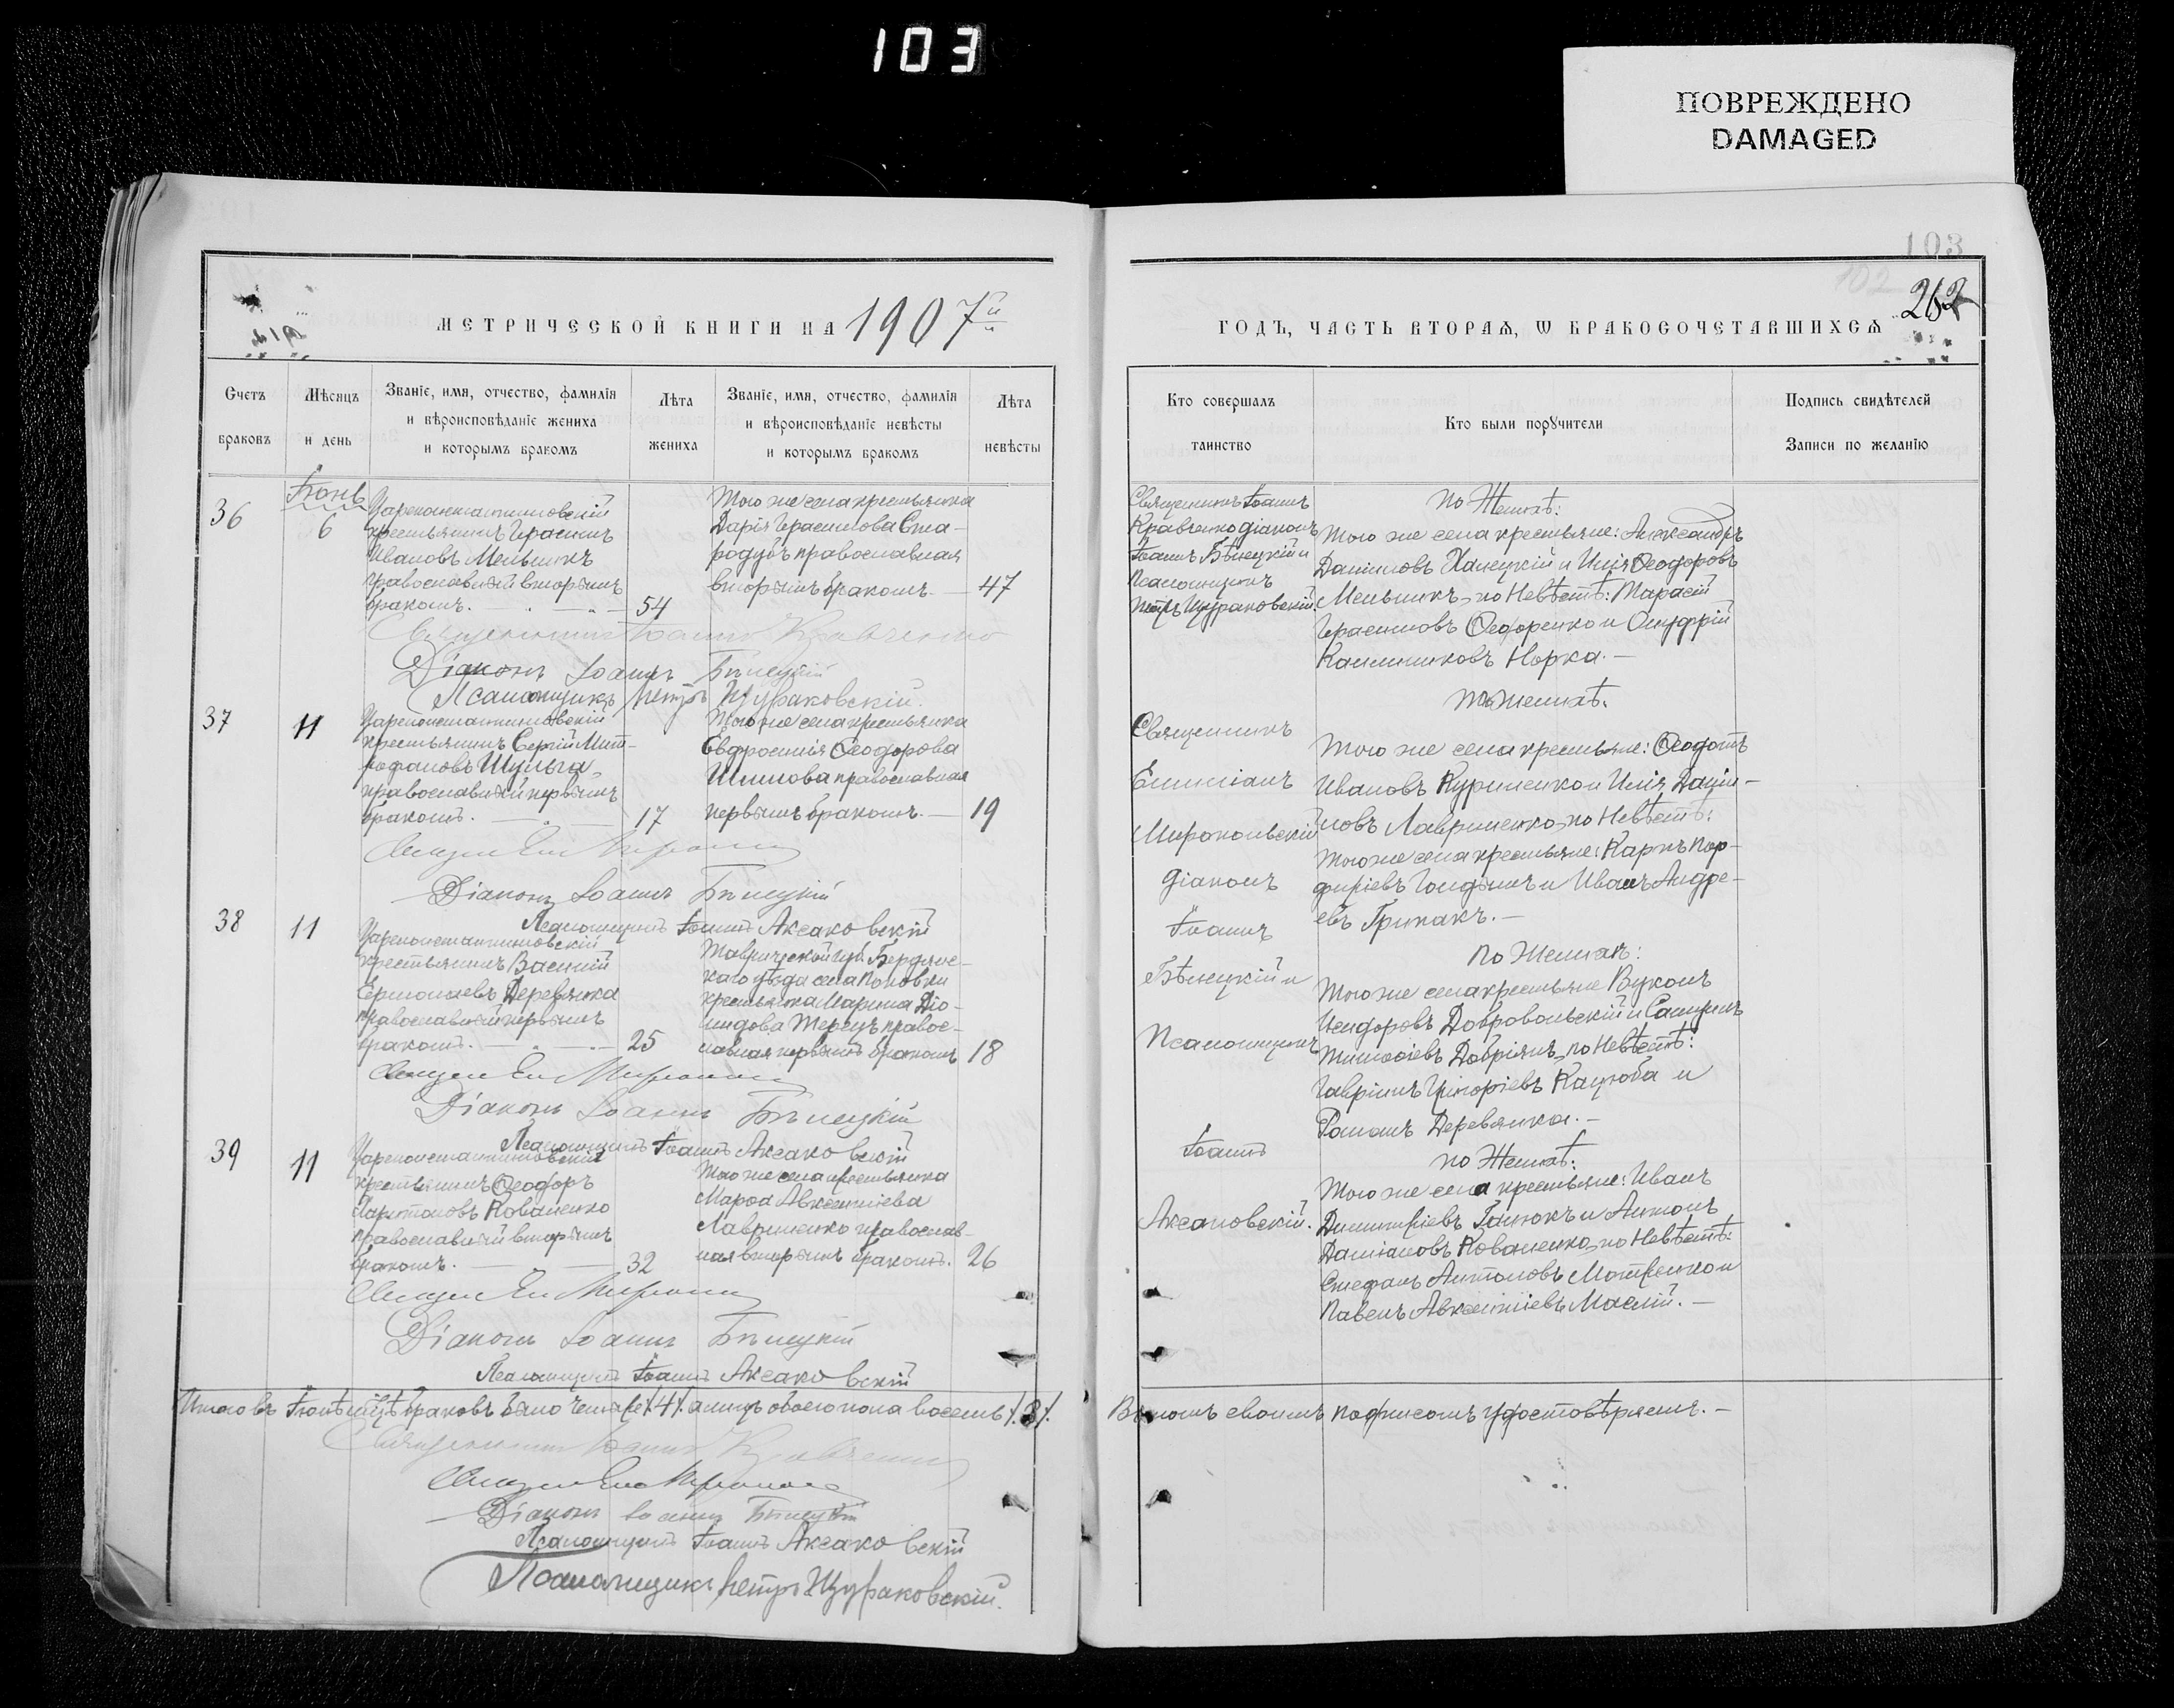 103
ПОВРЕЖДЕНО
DAMAGED
103
102
262
МЕТРИЧЕСКОЙ КНИГИ НА 1907й
Счетъ браковъ
Мѣсяцъ и день
Званіе, имя, отчество, фамилія и вѣроисповѣданіе жениха и которымъ бракомъ
Лѣта жениха
Званіе, имя, отчество, фамилія и вѣроисповѣданіе невѣсты и которымъ бракомъ
Лѣта невѣсты
36
Іюнь
6
Цареконстантиновскій
крестьянинъ Герасимъ
Ивановъ Мельникъ
православный вторымъ
бракомъ.
54
Того же села крестьянка
Дарія Герасимова Ста-
родубъ православная
вторымъ бракомъ.
47
Священникъ Іоаннъ Кравченко
Діаконъ Іоаннъ Бѣлецкій
Псаломщикъ Петръ Щураковскій.
37
11
Цареконстантиновскій
крестьянинъ Сергій Мит-
рофановъ Шульга,
православный первымъ
бракомъ.
17
Того же села крестьянка
Евфросинія Ѳеодорова
Шилова православная
первымъ бракомъ.
19
Діаконъ Іоаннъ Бѣлецкій
Псаломщикъ Іоаннъ Аксаковскій
38
11
Цареконстантиновскій
крестьянинъ Василій
Ермолаевъ Деревянка
православный первымъ
бракомъ.
25
Таврической губ. Бердянс-
каго уѣзда села Поповки
крестьянка Марина Діо-
мидова Терецъ правос-
лавная первымъ бракомъ
18
Діаконъ Іоаннъ Бѣлецкій
Псаломщикъ Іоаннъ Аксаковскій
39
11
Цареконстантиновскій
крестьянинъ Ѳеодоръ
Харитоновъ Коваленко
православный вторымъ
бракомъ.
32
Того же села крестьянка
Марѳа Авксентіева
Лавриненко православ-
ная вторымъ бракомъ.
26
Діаконъ Іоаннъ Бѣлецкій
Псаломщикъ Іоаннъ Аксаковскій
Итого въ Іюнѣ мѣс. браковъ было четыре /4/. а лицъ обоего пола восемь /8/.
Священникъ Іоаннъ Кравченко
Діаконъ Іоаннъ Бѣлецкій
Псаломщикъ Іоаннъ Аксаковскій
Псаломщикъ Петръ Щураковскій.
ГОДЪ, ЧАСТЬ ВТОРАЯ, Ѡ БРАКОСОЧЕТАВШИХСЯ
Кто совершалъ таинство
Кто были порꙋчители
Подпись свидѣтелей Записи по желанію
Священникъ Іоаннъ
Кравченко діаконъ
Іоаннъ Бѣлецкій и
Псаломщикъ
Петръ Щураковскій.
По Женихѣ:
Того же села крестьяне: Александръ
Даниловъ Халецкій и Илія Ѳеодоровъ
Мельникъ, по Невѣстѣ: Тарасій
Герасимовъ Ѳедоренко и Онуфрій
Калинниковъ Норка.
Священникъ
Емиліанъ
Миропольскій
діаконъ
Іоаннъ
Бѣлецкій и
Псаломщикъ
Іоаннъ
Аксаковскій.
По женихѣ.
Того же села крестьяне: Ѳеодотъ
Ивановъ Куриленко и Илія Дані-
иловъ Лавриненко, по Невѣстѣ:
Того же села крестьяне: Карпъ Пор-
фиріевъ и Иванъ Андре-
евъ Гринакъ.
По Женихѣ:
Того же села крестьяне Вуколъ
Исидоровъ Добровольскій и
Тимоѳіевъ Добріянъ, по Невѣстѣ:
Гавріилъ Григоріевъ Кацюба и
Романъ Деревянка.
По Женихѣ:
Того же села крестьяне: Иванъ
Димитріевъ Гайтокъ и Антонъ
Даміановъ Коваленко, по Невѣстѣ:
Стефанъ Антоновъ Мотренко и
Павелъ Авксентіевъ Маслій.
Въ томъ своимъ подписомъ удостовѣряемъ.